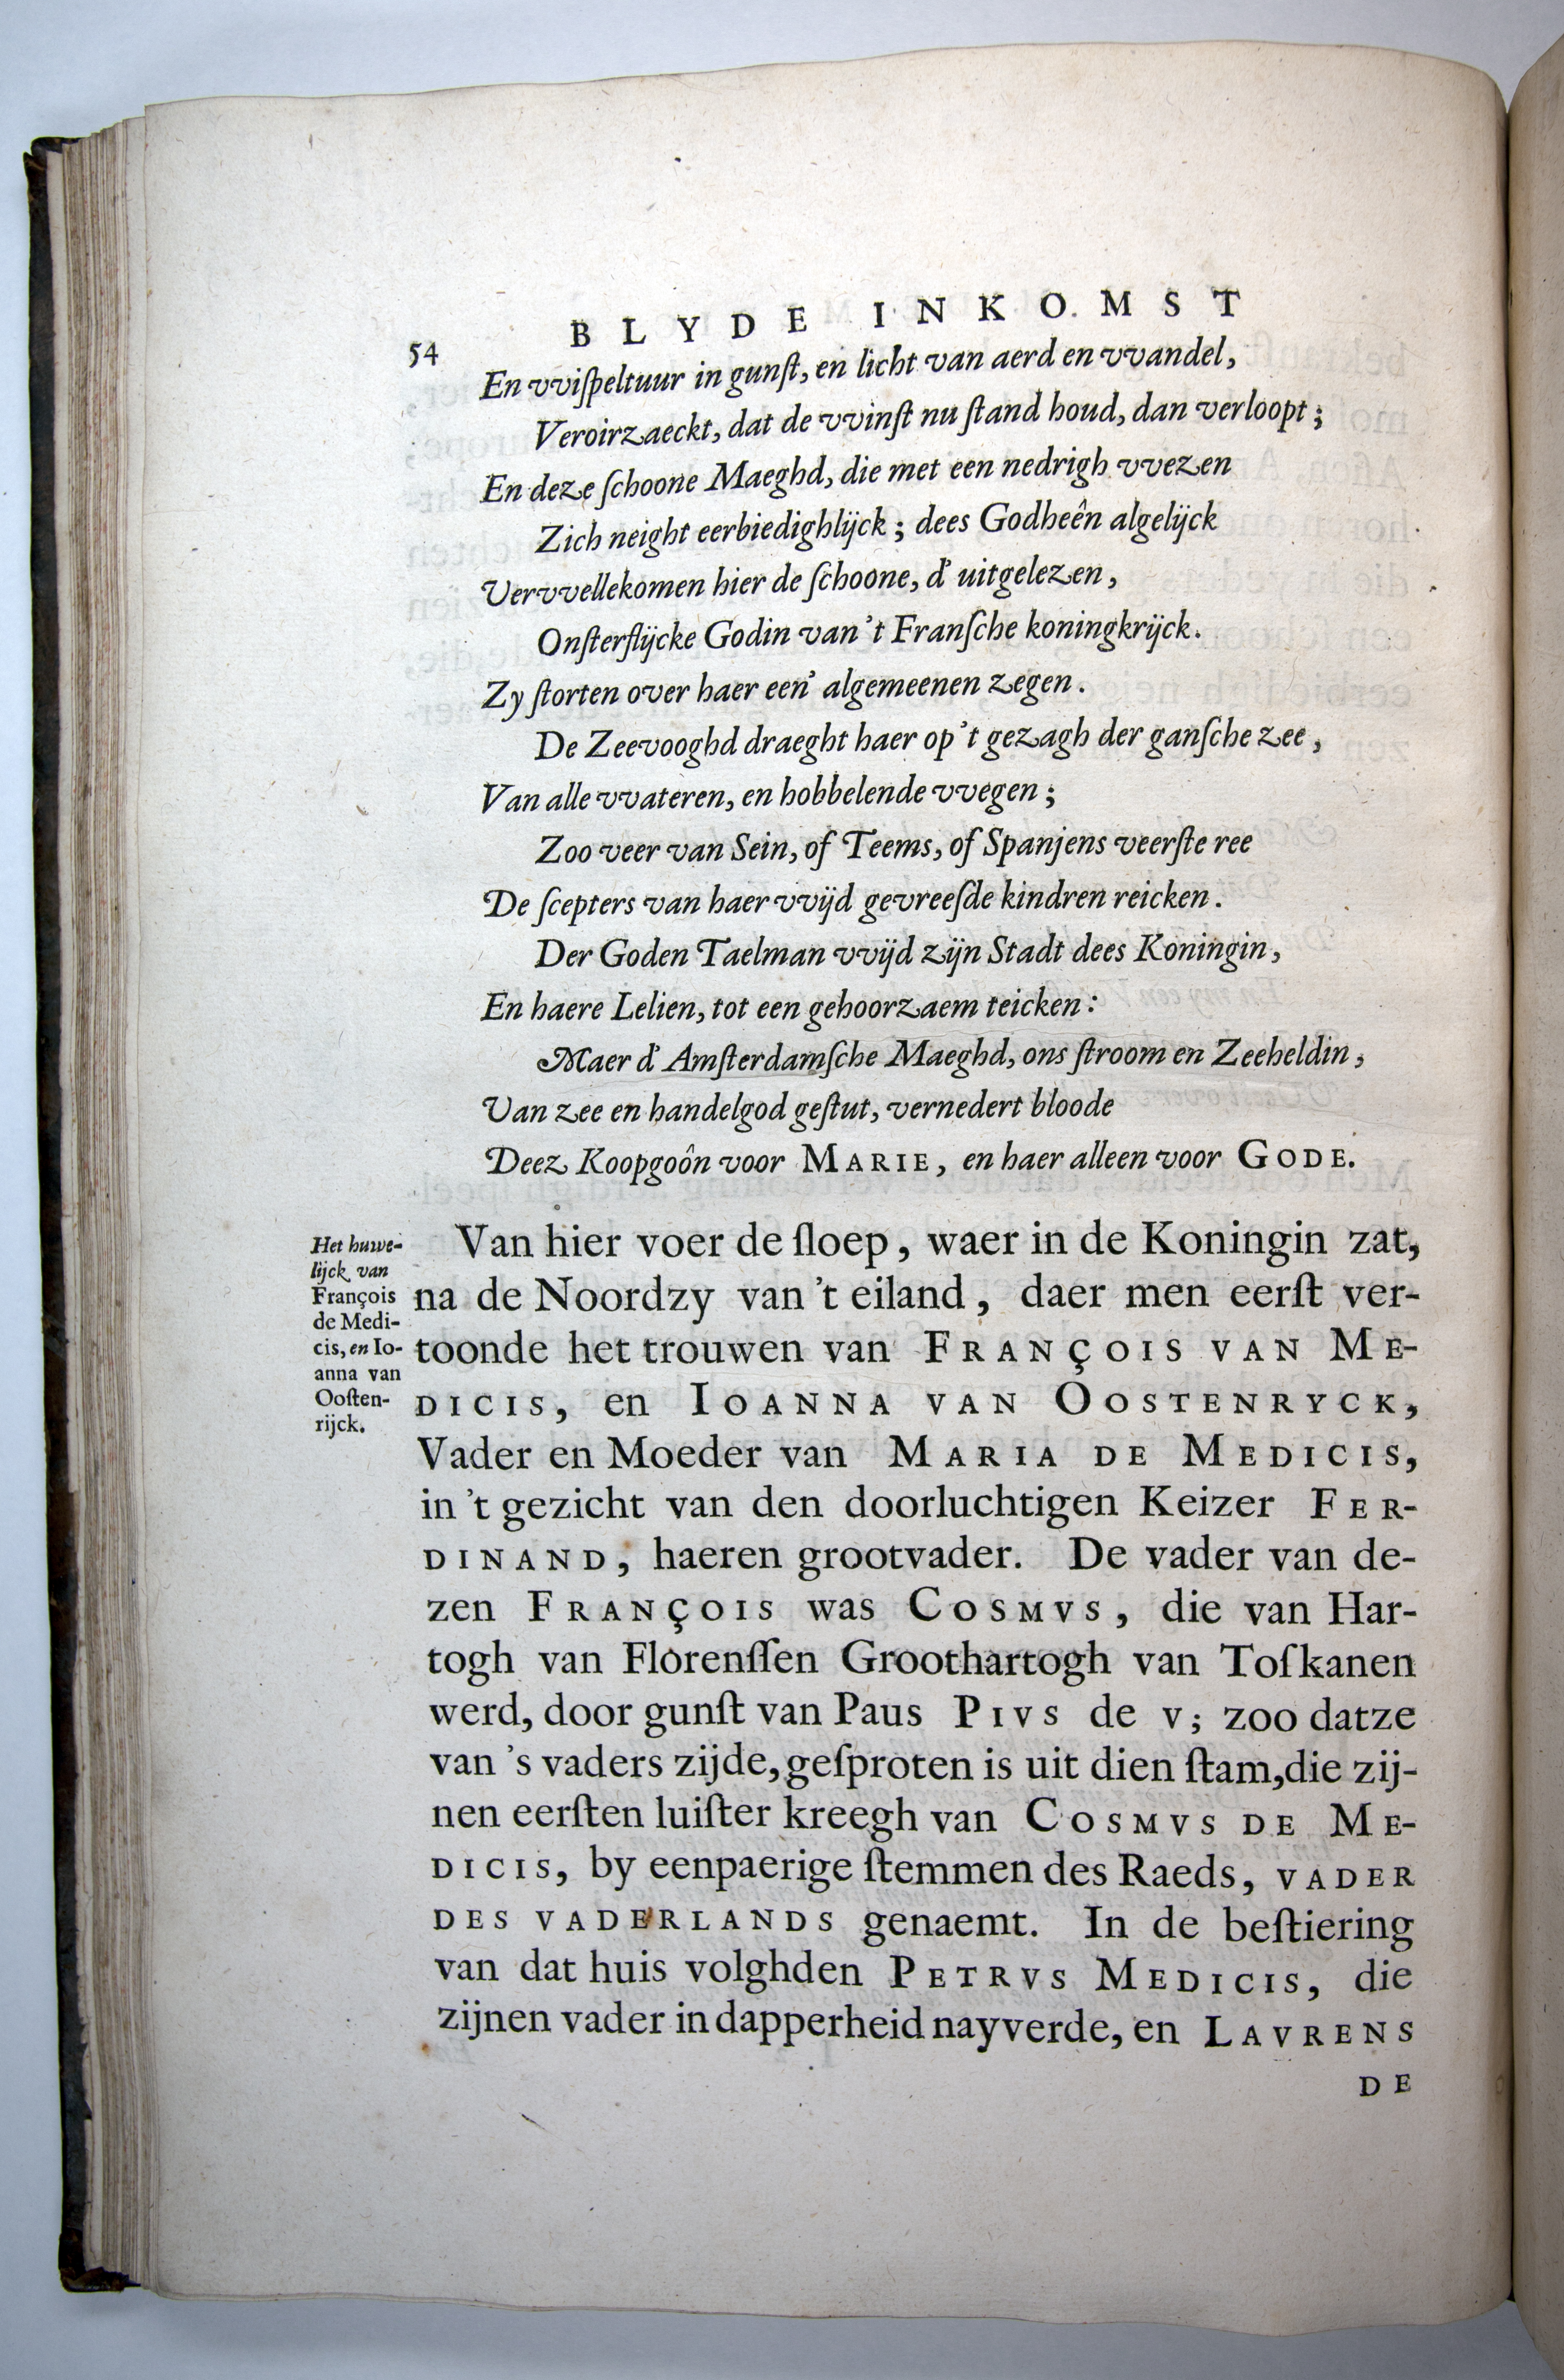 54
BLYDE INKOMST
En vviſpeltuur in gunſt, en licht van aerd en vvandel,
Veroirzaeckt, dat de vvinſt nu ſtand houd, dan verloopt;
En deze ſchoone Maeghd, die met een nedrigh vvezen
Zich neight eerbiedighlijck; dees Godheên algelijck
Vervvellekomen hier de ſchoone, d' uitgelezen,
Onſterflijcke Godin van 't Franſche koningkrijck.
Zy ſtorten over haer een' algemeenen zegen.
De Zeevooghd draeght haer op 't gezagh der ganſche zee,
Van alle vvateren, en hobbelende vvegen;
Zoo veer van Sein, of Teems, of Spanjens veerſte ree
De ſcepters van haer vvijd gevreeſde kindren reicken.
Der Goden Taelman vvijd zijn Stadt dees Koningin,
En haere Lelien, tot een gehoorzaem teicken:
Maer d' Amſterdamſche Maeghd, ons ſtroom en Zeeheldin,
Van zee en handelgod geſtut, vernedert bloode
Deez Koopgoôn voor MARIE, en haer alleen voor GODE.
Het huwe-
lijck van
François
de Medi-
cis, en Io-
anna van
Ooſten-
rijck.
Van hier voer de ſloep, waer in de Koningin zat,
na de Noordzy van 't eiland, daer men eerſt ver-
toonde het trouwen van FRANÇOIS VAN ME-
DICIS, en IOANNA VAN OOSTENRYCK,
Vader en Moeder van MARIA DE MEDICIS,
in 't gezicht van den doorluchtigen Keizer FER-
DINAND, haeren grootvader. De vader van de-
zen FRANÇOIS was COSMVS, die van Har-
togh van Florenſſen Groothartogh van Toſkanen
werd, door gunſt van Paus PIVS de V; zoo datze
van 's vaders zijde, geſproten is uit dien ſtam, die zij-
nen eerſten luiſter kreegh van COSMVS DE ME-
DICIS, by eenpaerige ſtemmen des Raeds, VADER
DES VADERLANDS genaemt. In de beſtiering
van dat huis volghden PETRVS MEDICIS, die
zijnen vader in dapperheid nayverde, en LAVRENS
DE